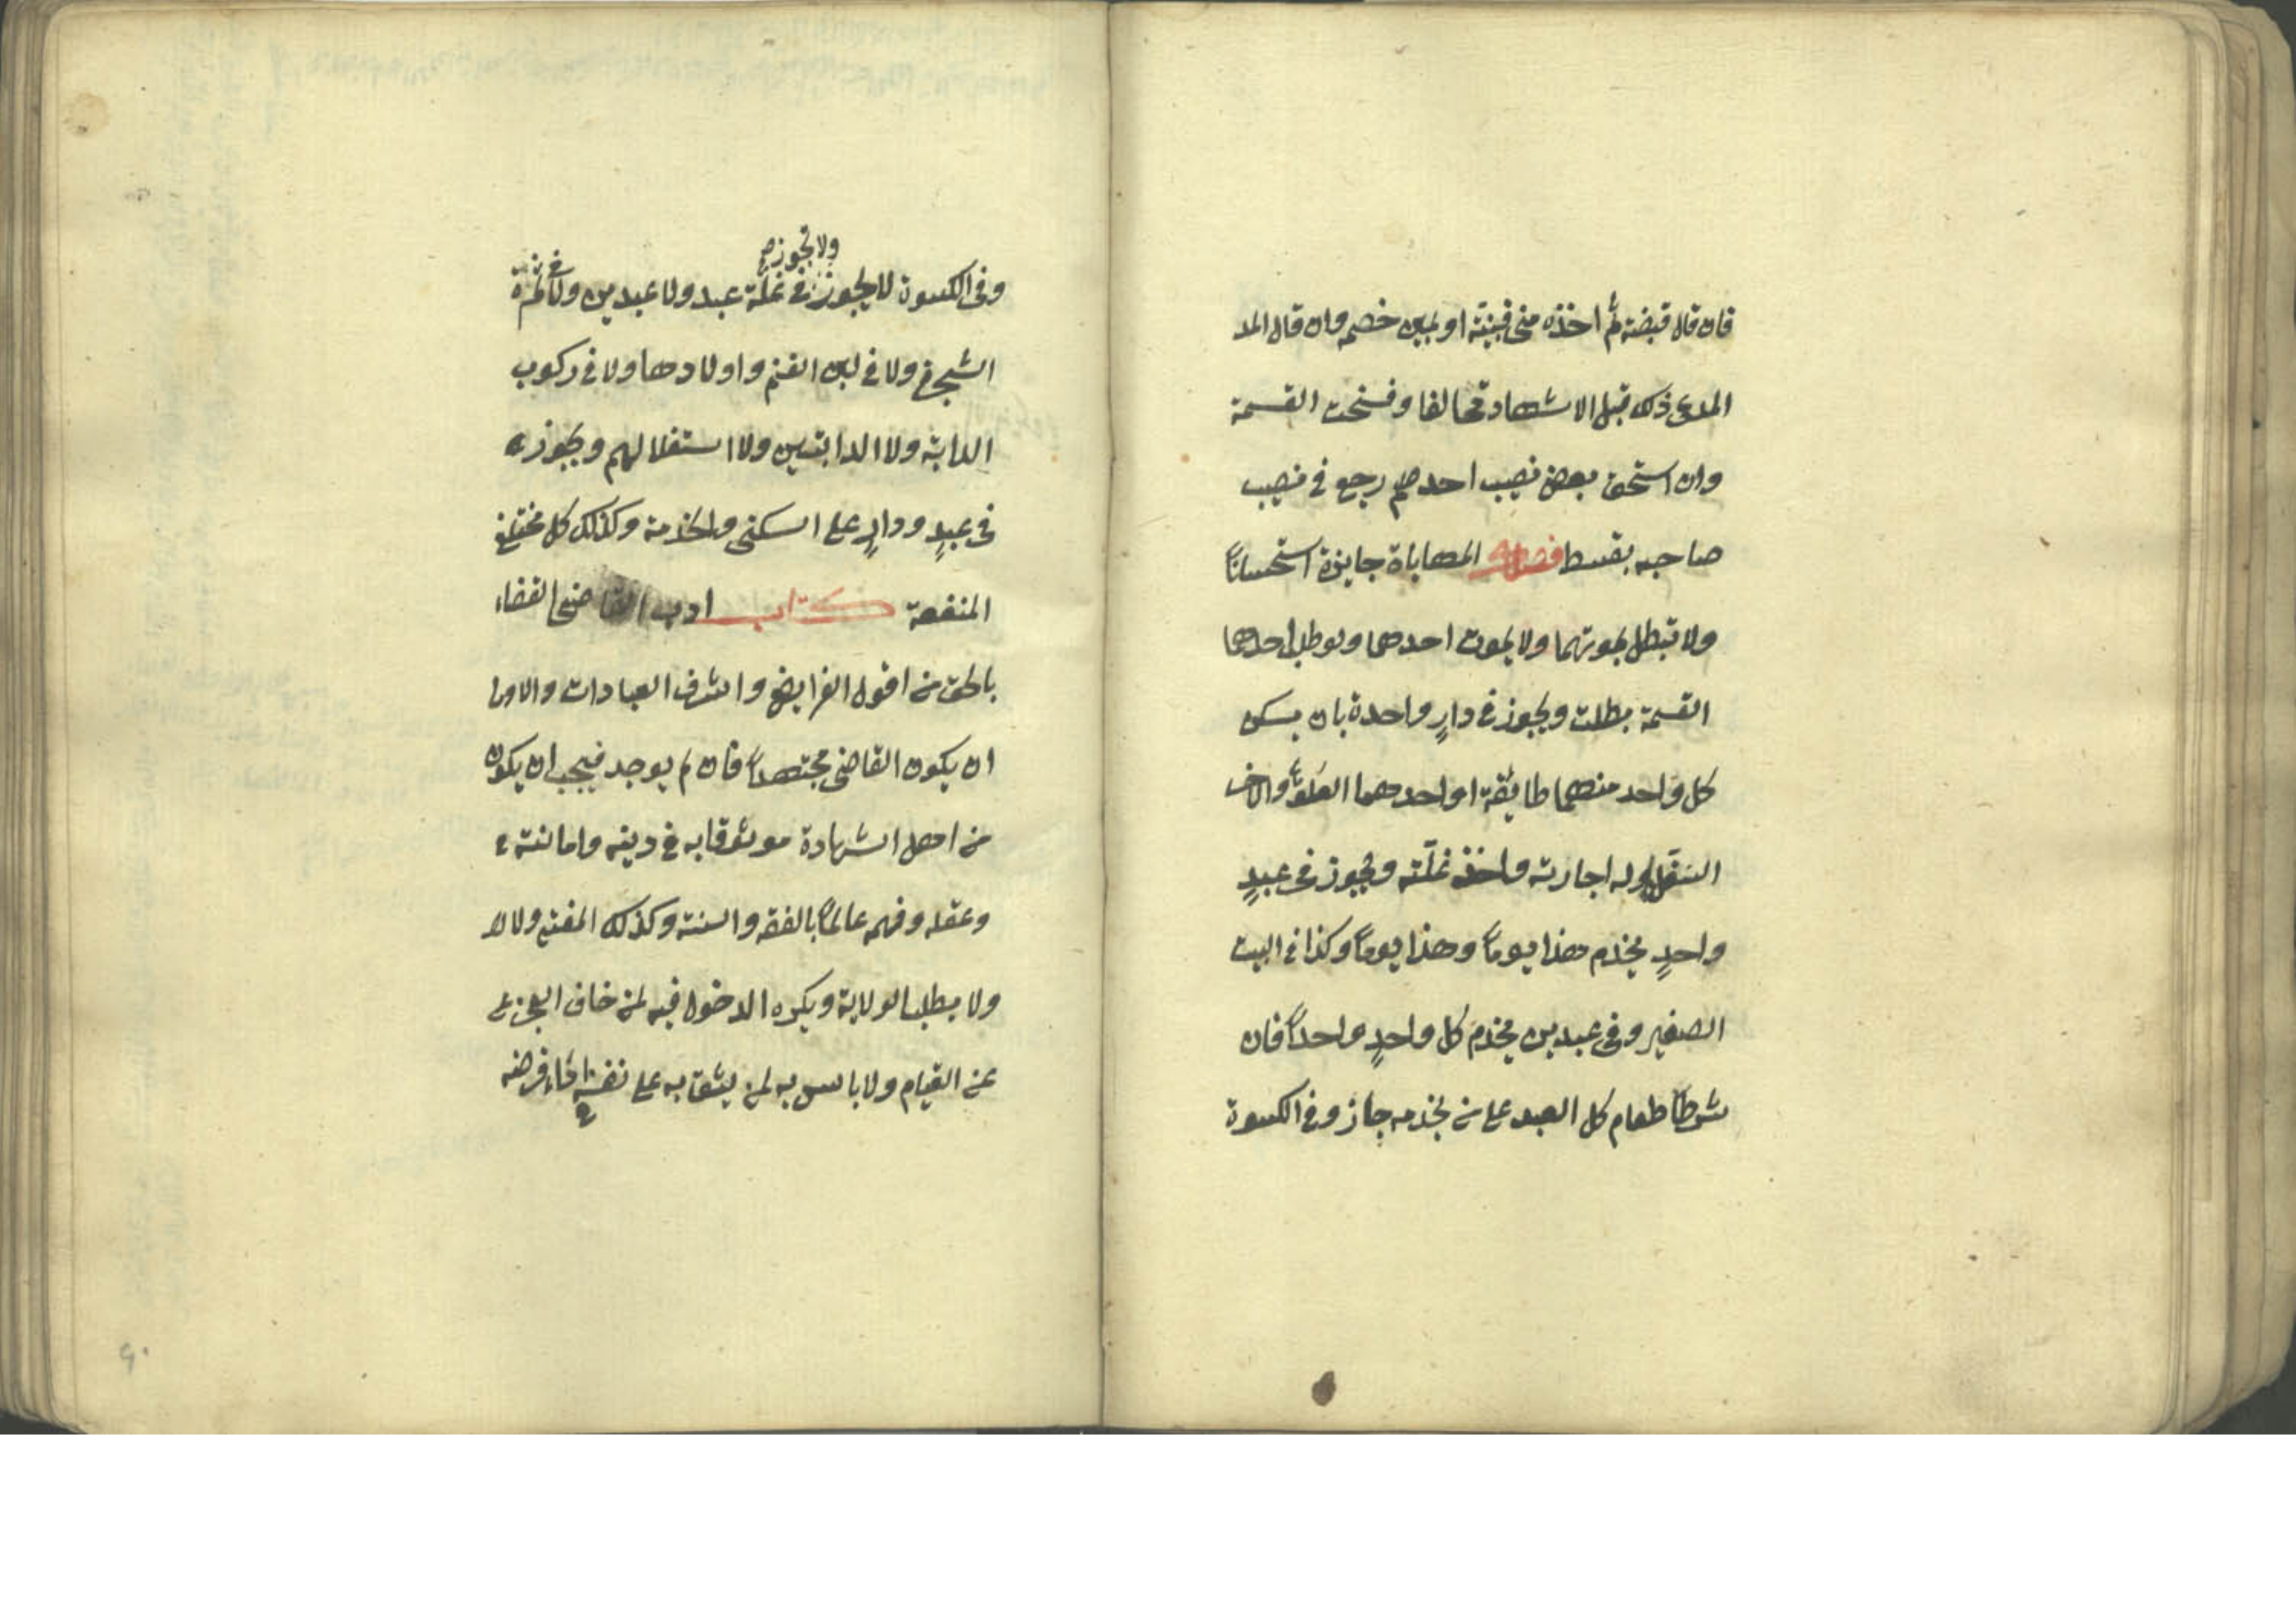 فان قال قبضته ثم اخذه منى فبينته او يمين خصمه وان قال المد
المدعى ذلك قبل الاشهاد تحالفا وفسخت القسمة
وان استحق بعض نصيب احدهم رجع فى نصيب
صاحبه بقسطه فصل المهاياة جايزة استحسانًا
ولا تبطل بموتهما ولا بموت احدهما ولو طلب احدهما
القسمة بطلت ويجوز فى دارٍ واحدة بان يسكن
كل واحد منهما طايفة او احدهما العلو والاخر
السفل وله اجارته واخذ غلّته ويجوز فى عبدٍ
واحدٍ يخدم هذا يومًا وهذا يومًا وكذا فى البيت
الصغير وفى عبدين يخدم كل واحدٍ واحدًا فان
شرطا طعام كل العبد على من يخدمه جاز وفى الكسوة
ولا تجوز
وفى الكسوة لا يجوز فى غلّة عبد ولا عبدين ولا فى ثمرة
الشجر ولا فى لبن الغنم واولادها ولا فى ركوب
الدابة ولا الدابتين ولا استغلالهم ويجوز
فى عبدٍ ودارٍ على السكنى والخدمة وكذلك كل مختلفى
المنفعة كتاب ادب القاضى القضاء
بالحق من اقوى الفرايض واشرف العبادات والاولى
ان يكون القاضى مجتهدًا فان لم يوجد فيجب ان يكون
من اهل الشهادة موثوقا به فى دينه وامانته
وعقله وفهمه عالمًا بالفقه والسنة وكذلك المفتى ولا
ولا يطلب الولاية ويكره الدخول فيه لمن خاف العجز
عن القيام ولا باس به لمن يثق به على نفسه اداء فرضه